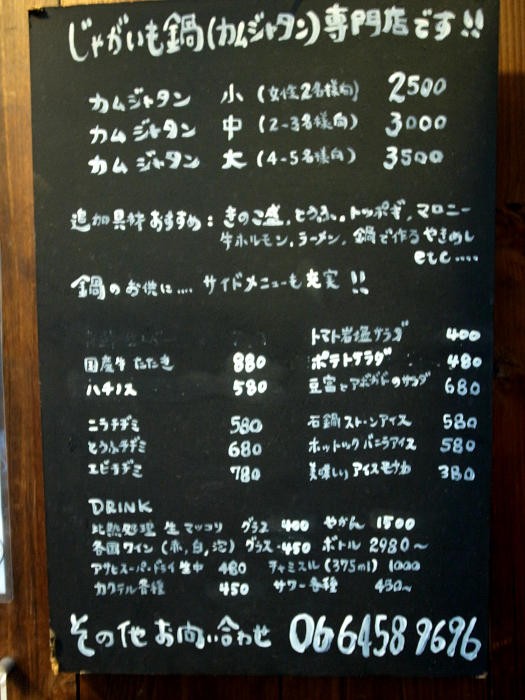 じゃがいも鍋(カムジャタン)専門店です!!
カムジャタン 小 (女性2名様向) 2500
カムジャタン 中 (2-3名様向) 3000
カムジャタン 大 (4-5名様向) 3500
追加具材おすすめ:きのこ盛、とうふ、トッポギ、マロニー
牛ホルモン、ラーメン、鍋で作るやきめし
etc....
鍋のお供に.... サイドメニューも充実!!
トマト岩塩サラダ 400
国産牛たたき 880 ポテトサラダ 480
ハチノス 580 豆富とアボガドのサラダ 680
ニラチヂミ 580 石鍋ストーンアイス 580
とうふチヂミ 680 ホットックバニラアイス 580
エビラヂミ 780 美味しいアイスモナカ 380
DRINK
非熱処理 生マッコリ グラス 400 やかん 1500
各国ワイン(赤,白,泡) グラス・450 ボトル 2980~
アサヒスーパードライ生中 480 チャミスル(375ml) 1000
カクテル各種 450 サワー各種 430~
その他お問い合わせ 06 6458 9696